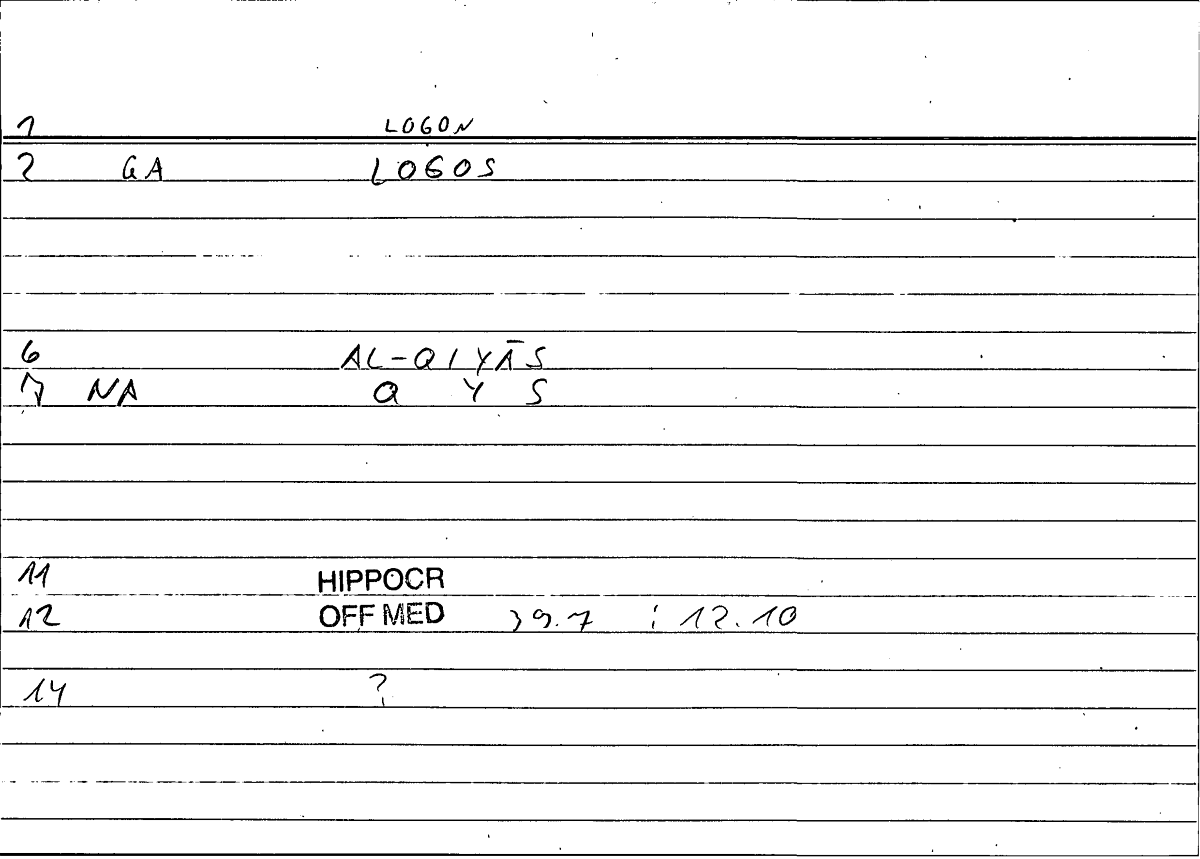 1 LOGON
2 GA LOGOS
6 AL-QIYĀS
7 NA Q Y S
11 HIPPOCR
12 OFF MED 39.7 : 12.10
14 ?